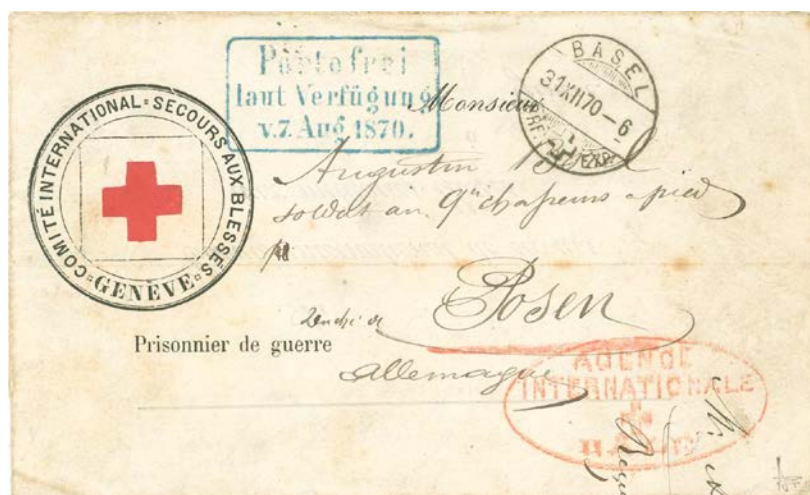 Portofrei
laut Verfügung
v. 7. Aug. 1870.
BASEL
31 XII 70 - 6
EXP.
COMITÉ INTERNATIONAL SECOURS AUX BLESSÉS
GENÈVE
Monsieur
Augustin
soldat au 9me chasseurs a pied
Posen
Duché de
Prisonnier de guerre
Allemagne
AGENCE
INTERNATIONALE